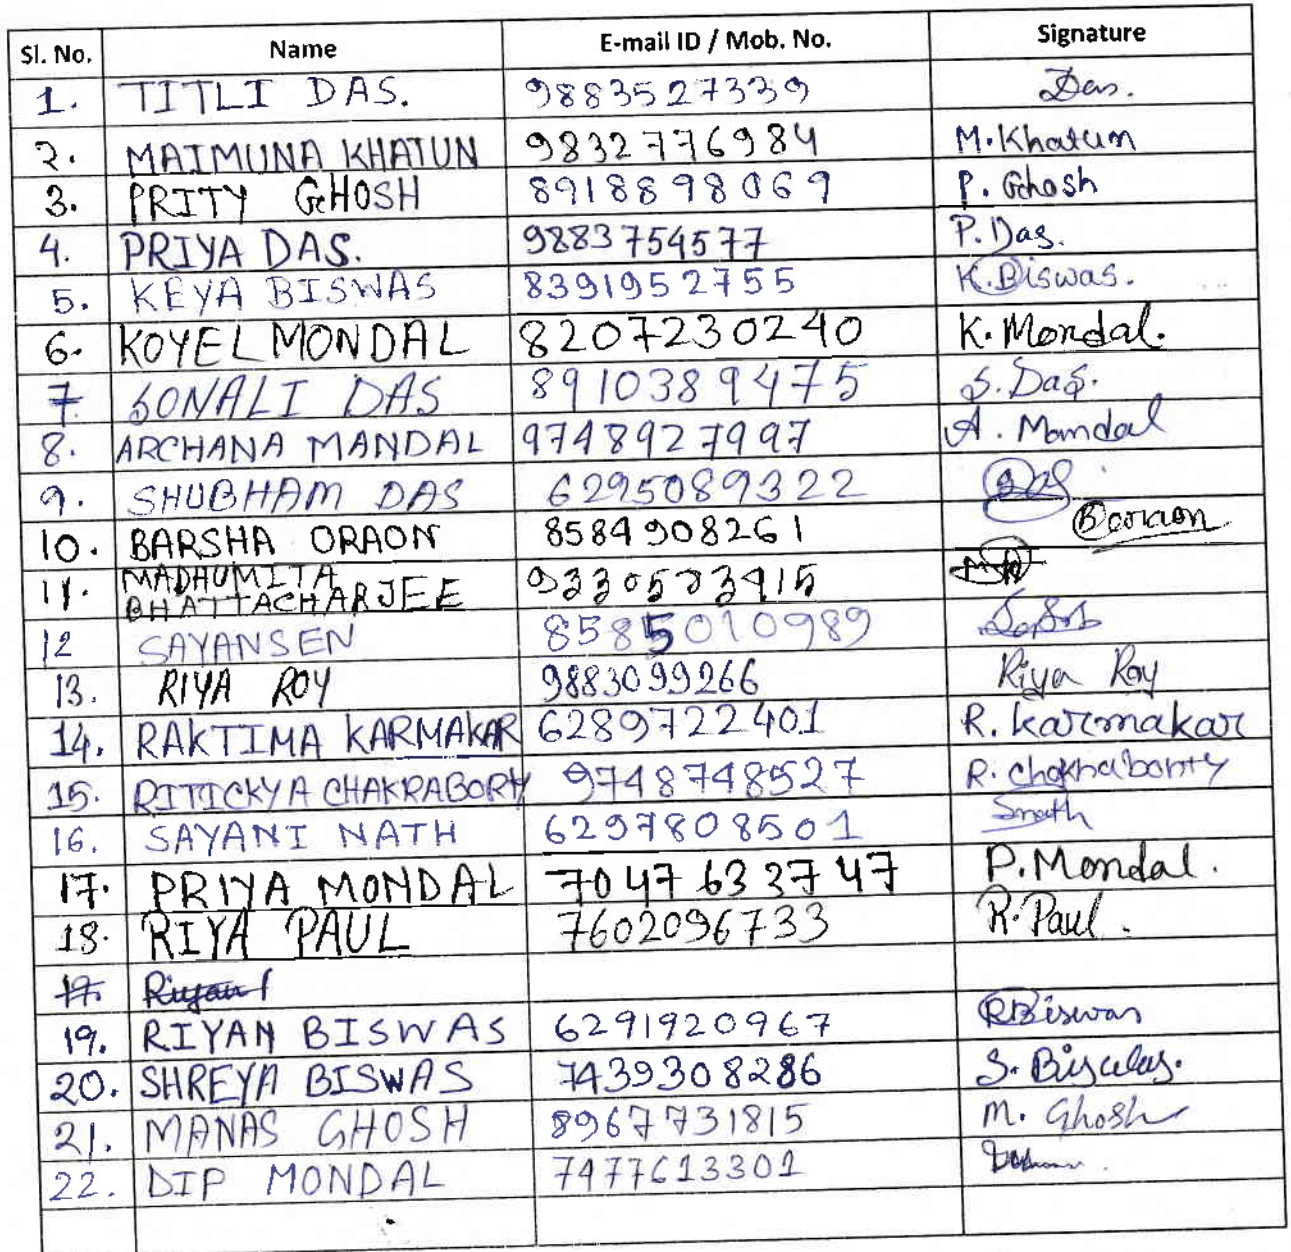 Sl. No. Name E-mail ID / Mob. No. Signature
1. TITLI DAS. 9883527339 Das.
2. MAIMUNA KHATUN 9832776984 M. Khatun
3. PRITY GHOSH 8918898069 P. Ghosh
4. PRIYA DAS. 9883754577 P. Das.
5. KEYA BISWAS 8391952755 K. Biswas.
6. KOYEL MONDAL 8207230240 K. Mondal.
7 SONALI DAS 8910389475 S. Das.
8. ARCHANA MANDAL 9748927997 A. Mandal
9. SHUBHAM DAS 6295089322 Das
10. BARSHA ORAON 8584908261 Boraon
11. MADHUMITA
BHATTACHARJEE
12 SAYANSEN 8585010989
13. RIYA ROY 9883099266 Riya Roy
14. RAKTIMA KARMAKAR 6289722401 R. Karmakar
15. RITICKYA CHAKRABORTY 9748748527 R. Chakraborty
16. SAYANI NATH 6297808501 Snath
17. PRIYA MONDAL 7047633747 P. Mondal.
18. RIYA PAUL 7602096733 R. Paul.
19. RIYAN BISWAS 6291920967 RBiswas
20. SHREYA BISWAS 7439308286 S. Biswas.
21. MANAS GHOSH 8967731815 M. Ghosh
22. DIP MONDAL 7477613301